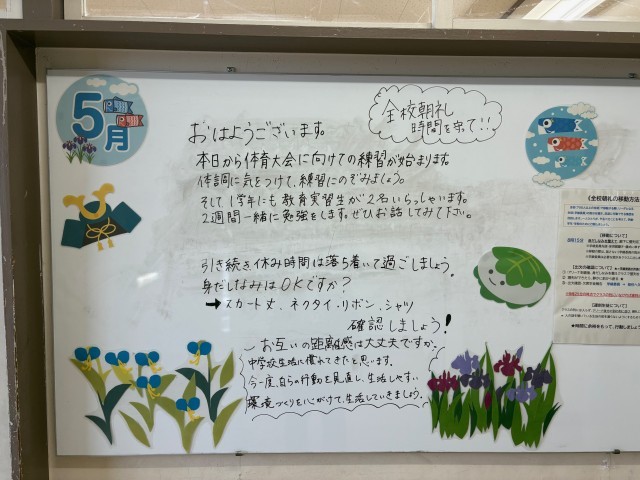 5月
全校朝礼
時間を守て!!
おはようございます。
本日から体育大会に向けての練習が始まります。
体調に気をつけて、練習にのぞみましょう。
そして1学年にも教育実習生が2名いらっしゃいます。
2週間一緒に勉強をします。ぜひお話してみて下さい。
引き続き休み時間は落ち着いて過ごしましょう。
身だしなみはOKですか?
→スカート丈、ネクタイ・リボン、シャツ
確認しましょう!
お互いの距離感は大丈夫ですか。
中学校生活に慣れてきたと思います。
今一度、自らの行動を見直し、生活しやすい
環境づくりを心がけて、生活していきましょう。
《全校朝礼の移動方法
8時15分